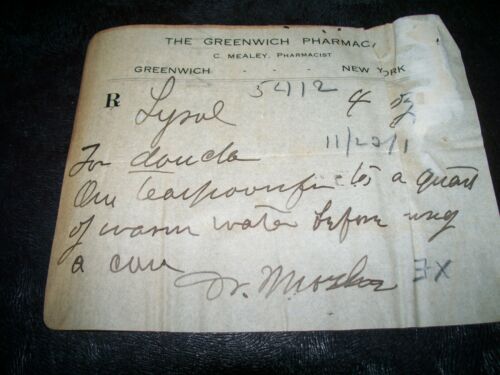 THE GREENWICH PHARMAC
C. MEALEY, PHARMACIST
GREENWICH - - - NEW YORK
5412
R Lysol 4 oz
11/23/1
For douche
One teaspoonful to a quart
of warm water before using
a
Dr. Mosher